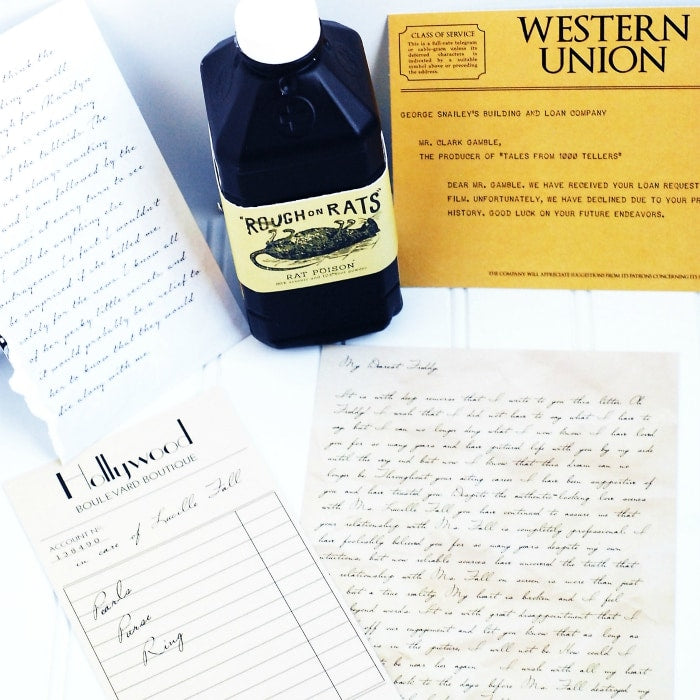 k the
we will
for Marilyn
is excruciating
of the tabloids. The
are always
followed by the
every turn to see
be the
I wouldn't
killed me.
I know all
of her perky little and
it would probably be a relief to
her to know that they would
die along with me.
"ROUGH on RATS"
RAT POISON
CLASS OF SERVICE
This is a full-rate telegram
or cable-gram unless its
deferred character is
indicated by a suitable
symbol above or preceding
the address.
WESTERN
UNION
GEORGE SNAILEY'S BUILDING AND LOAN COMPANY
MR. CLARK GAMBLE,
THE PRODUCER OF "TALES FROM 1000 TELLERS"
DEAR MR. GAMBLE. WE HAVE RECEIVED YOUR LOAN REQUEST
FILM. UNFORTUNATELY, WE HAVE DECLINED DUE TO YOUR PR
HISTORY. GOOD LUCK ON YOUR FUTURE ENDEAVORS.
THE COMPANY WILL APPRECIATE SUGGESTIONS FROM ITS PATRONS CONCERNING ITS
Hollywood
BOULEVARD BOUTIQUE
ACCOUNT No.
138490
in care of Lucille Fall
Pearls
Purse
Ring
My Dearest Freddy,
It is with deep remorse that I write to you this letter. Oh
Freddy! I wish that I did not have to say what I have to
say but I can no longer deny what I now know. I have loved
you for so many years and have pictured life with you by my side
until the very end but now I know that this dream can no
longer be. Throughout your acting career I have been supportive of
you and have trusted you. Despite the authentic-looking love scenes
with Ms. Lucille Fall you have continued to assure me that
your relationship with Ms. Fall is completely professional. I
have foolishly believed you for so many years despite my own
intuitions, but now reliable sources have uncovered the truth that
relationship with Ms. Fall on screen is more than just
but a true reality. My heart is broken and I feel
beyond words. It is with great disappointment that I
off our engagement and let you know that as long as
is in the picture, I will not be. How could I
be near her again. I wish with all my heart
back to the days before Ms. Fall destroyed my